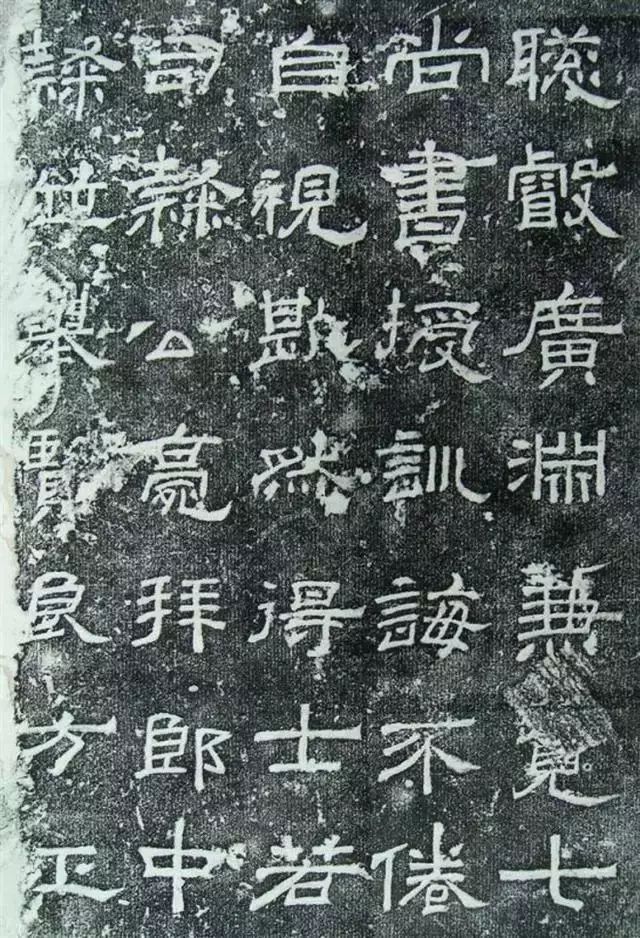 聰叡廣淵兼覽七
尚書授訓誨不倦
自視欿然得士若
司隸公亮拜郎中
隸竝舉賢良方正